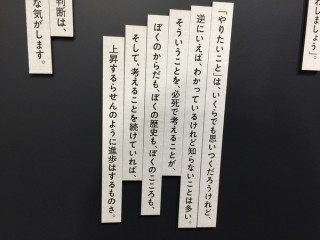 わしましょう」。
「やりたいこと」は、いくらでも思いつくだろうけれど、
逆にいえば、わかっているけれど知らないことは多い。
そういうことを、必死で考えることが、
ぼくのからだも、ぼくの歴史も、ぼくのこころも、
そして、考えることを続けていれば、
上昇するらせんのように進歩はするものさ。
判断は、
な気がします。